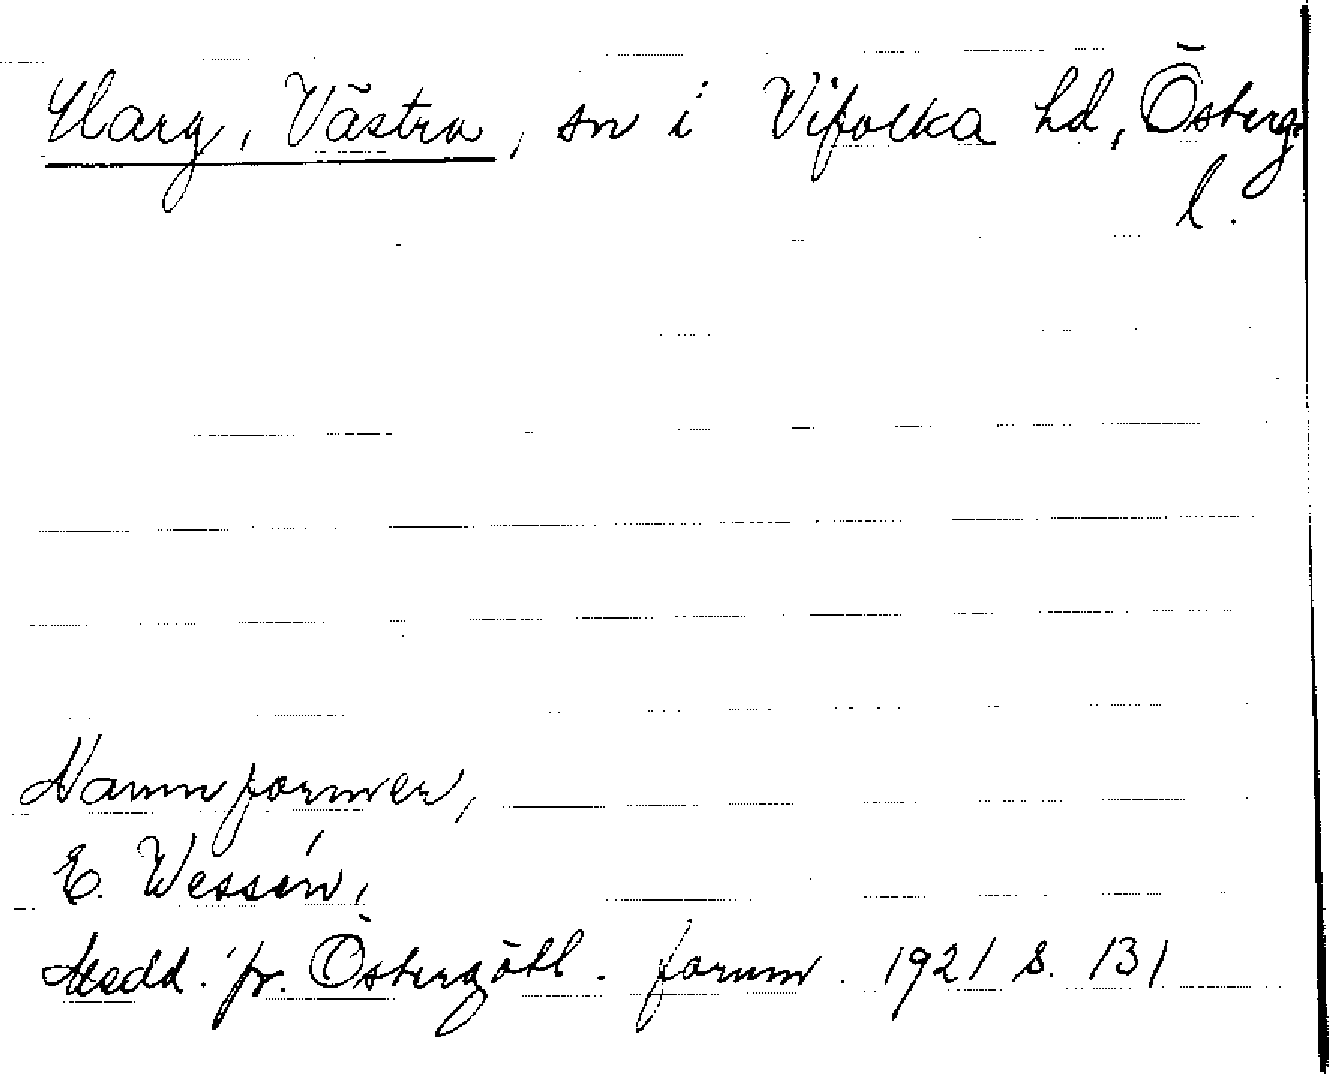 Harg, Västra, sn i Vifolka hd, Österg.
l.
Namnformer,
E. Wessén,
Medd. fr. Östergötl. fornm. 1921 s. 131